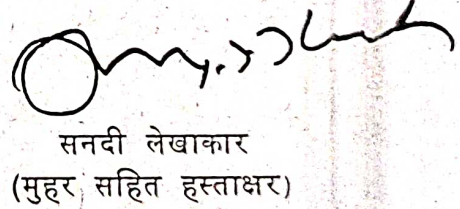 सनदी लेखाकार
(मुहर सहित हस्ताक्षर)